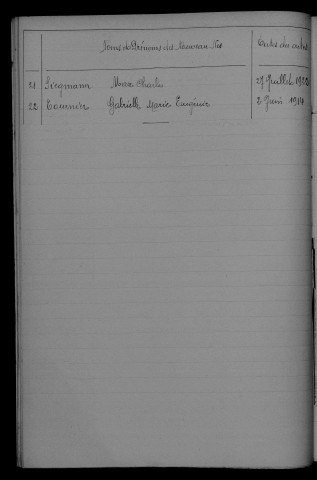 Noms et Prénoms des Nouveau-Nés Dates des actes
21 Siegmann Max Charles 27 Juillet
22 Tournier Gabrielle Marie Eugénie 2 Juin 1914